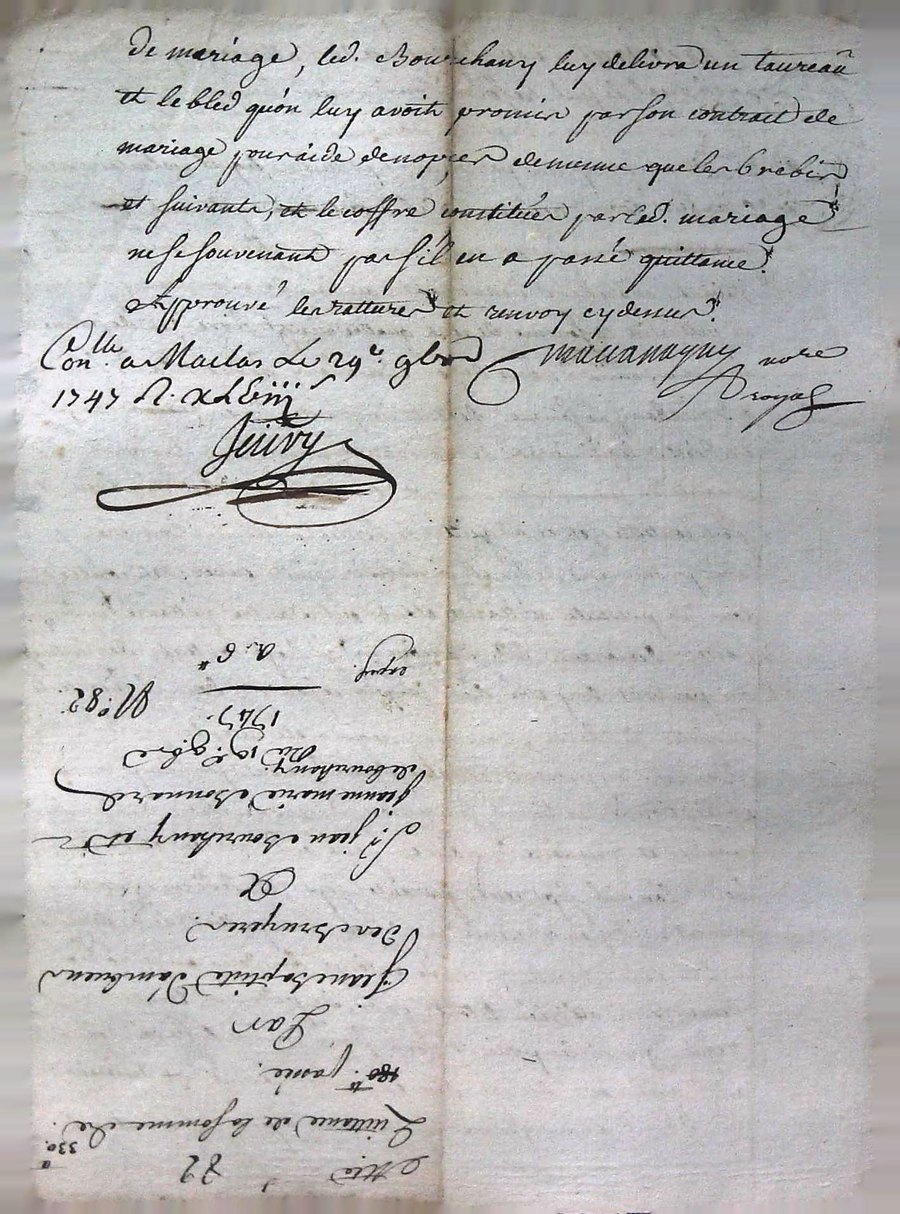 de mariage, led. Bourchany luy delivra un taureau
et le bled qu'on luy avoit promis par son contrait de
mariage pour aide de nopces de mesme que les brebis
et suivants, et le coffre constitués par led. mariage
ne se souvenant pas s'il en a passé quittance.
Approuvé les ratture et renvoy cydessus.
Conlle a Maclas Le 29e. 9bre
1747 R. xLviij s
nore
royal
N° 82
Quittance de la somme de
330
180tt passée.
Par
Jean baptiste
des bruyeres
A
Sr. jean Bourchany et
jeanne marie Bonnard
de bourchany.
Du 19e. 9bre
1747.